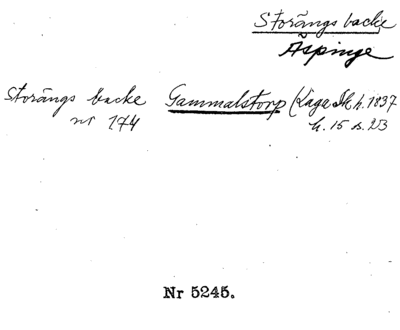 Storängs backe
Äspinge
Storängs backe Gammalstorp (Laga Sk h. 1837
nr 174 h. 15 s. 23
Nr 5245.